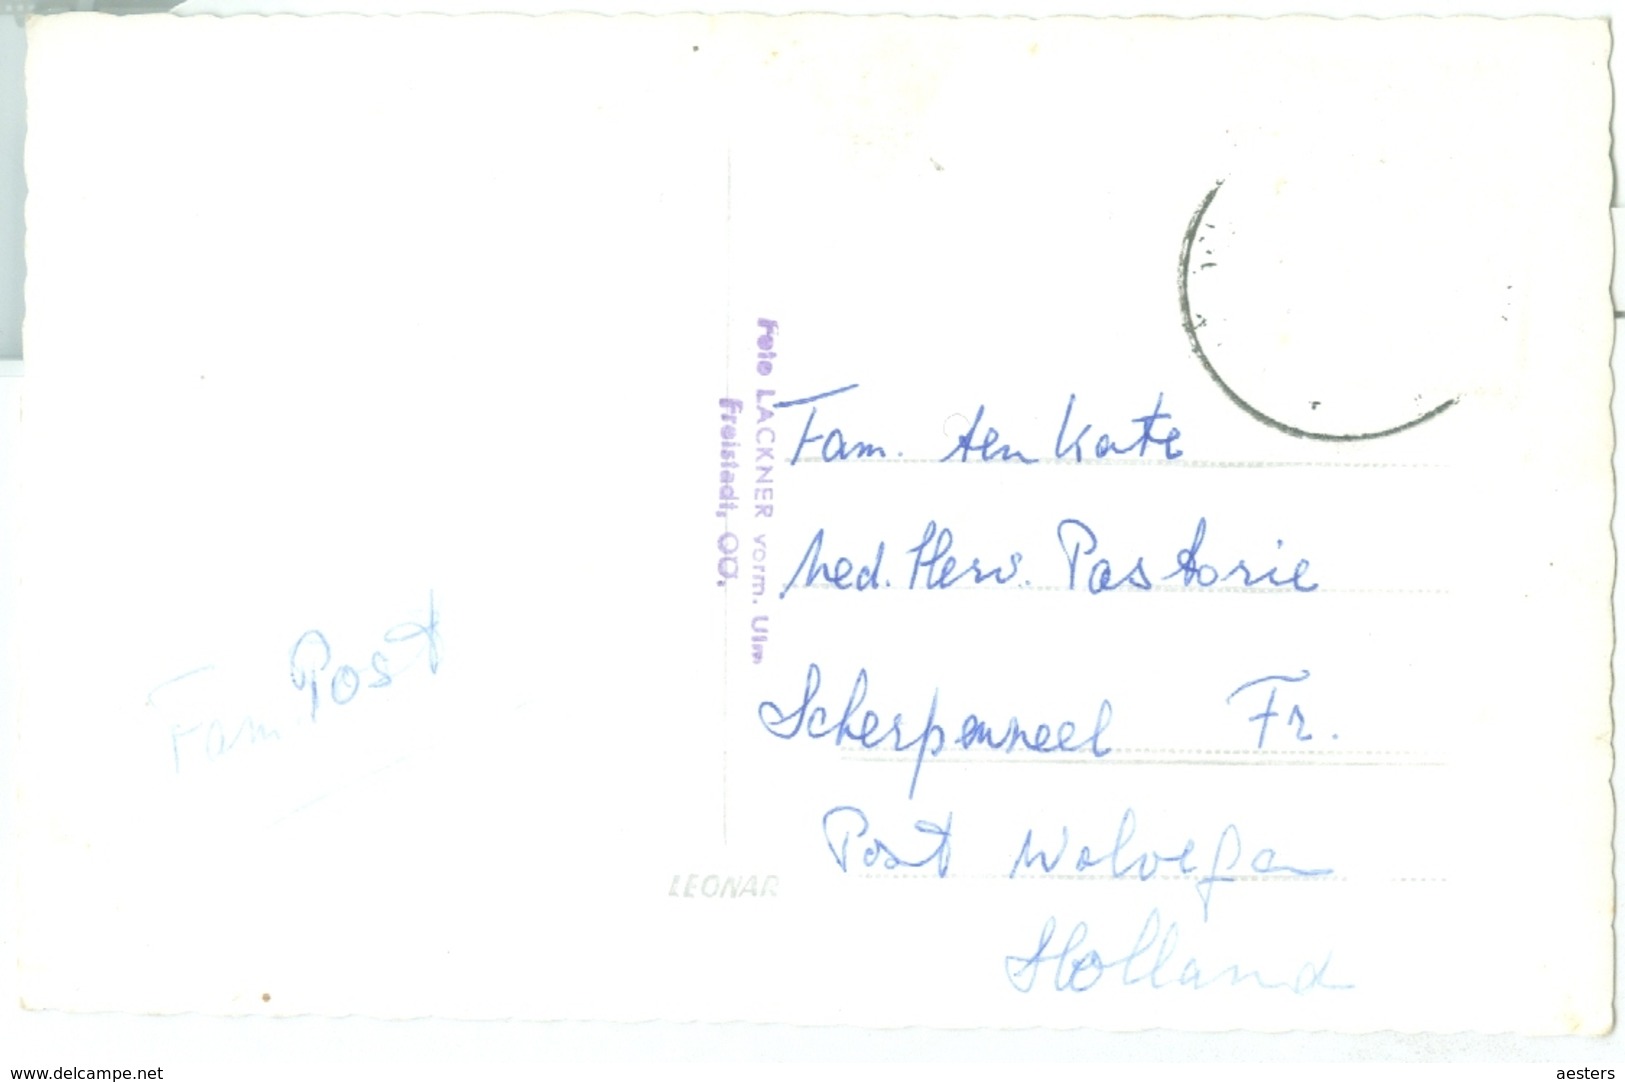 Fam. Post
Foto LACKNER vorm. Ulm
Freistadt, OÖ.
LEONAR
Fam. ten Kate
Ned. Herv. Pastorie
Scherpenneel Fr.
Post Wolvega
Holland
www.delcampe.net
aesters